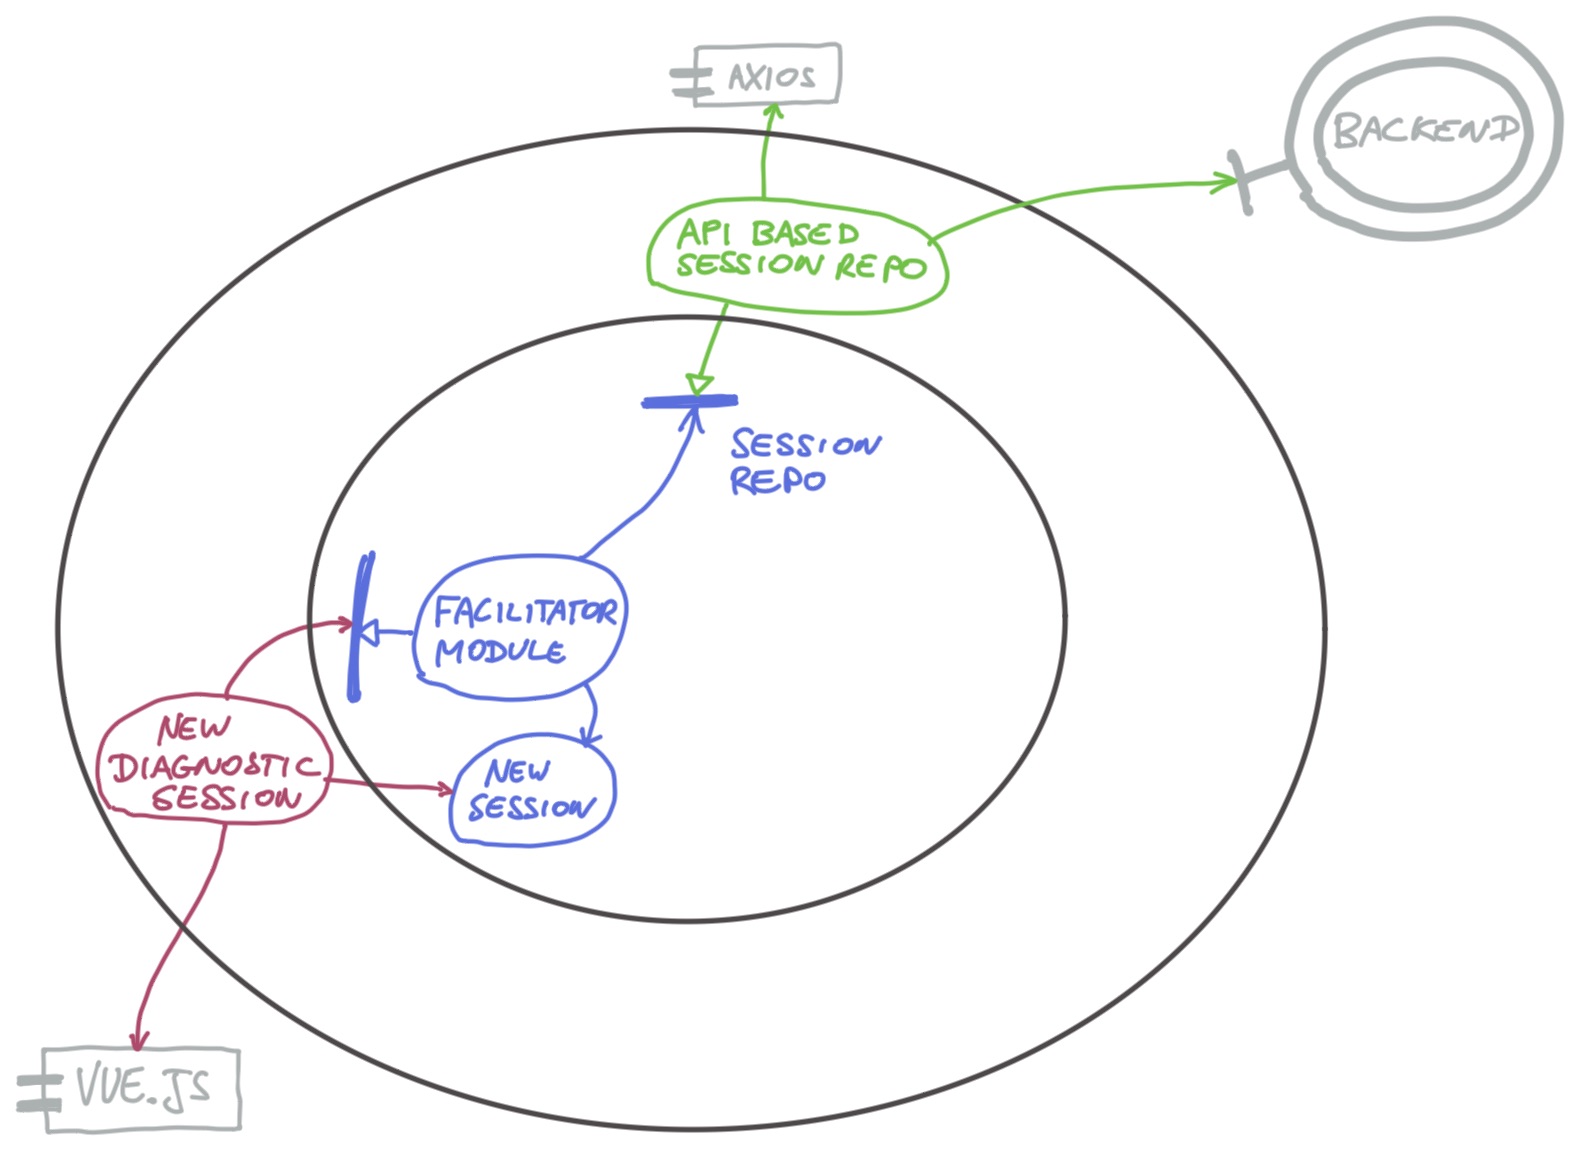 AXIOS
BACKEND
API BASED
SESSION REPO
SESSION
REPO
FACILITATOR
MODULE
NEW
DIAGNOSTIC
SESSION
NEW
SESSION
VUE.JS